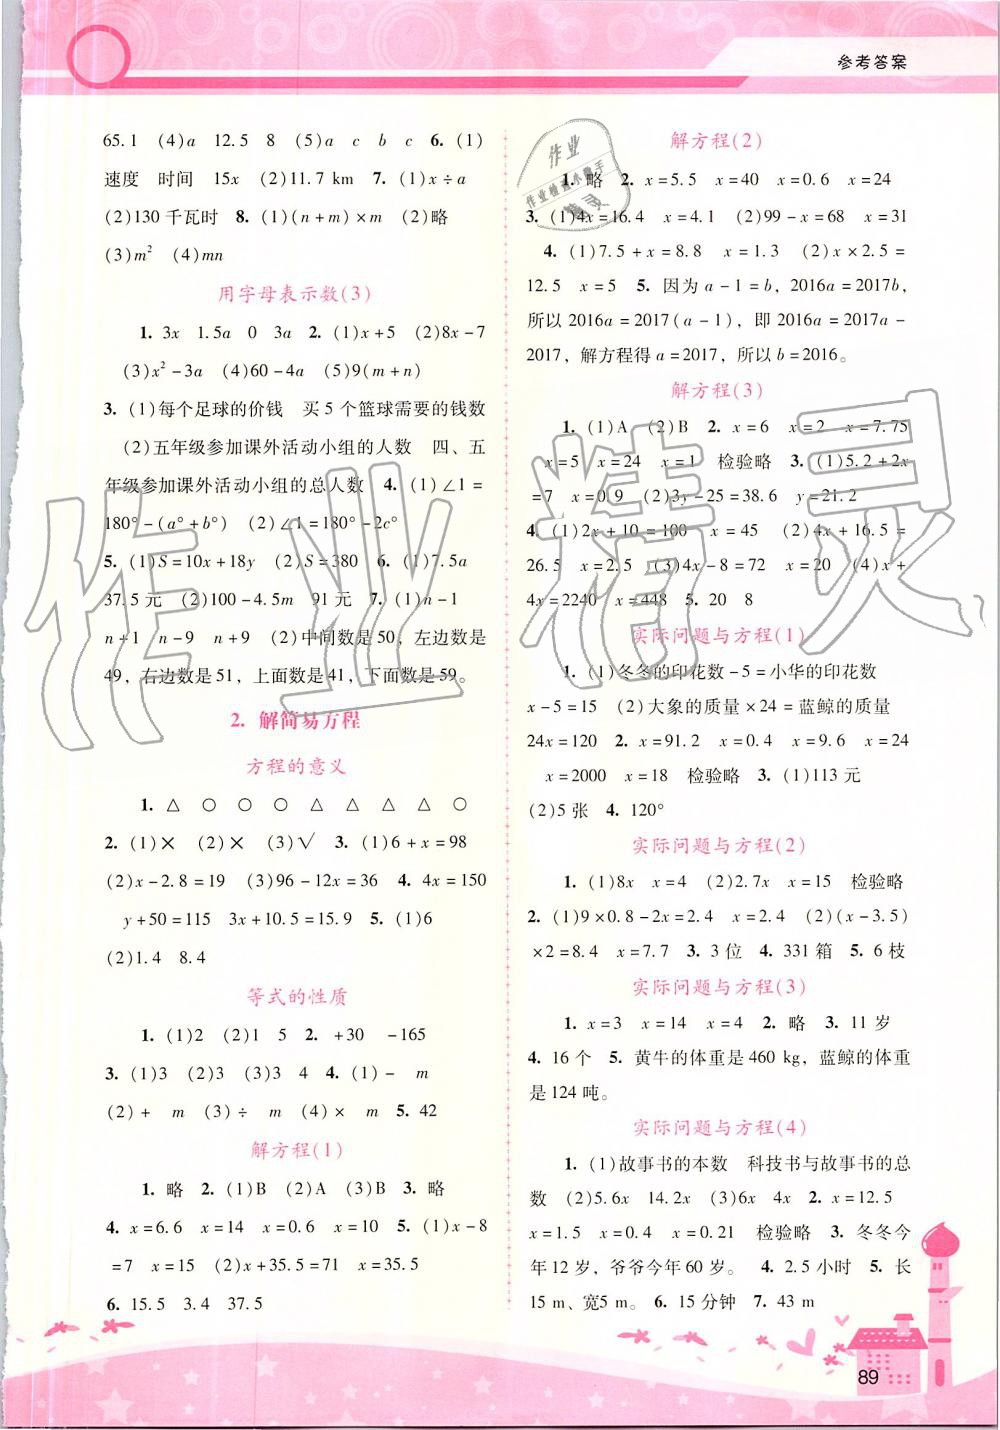 参考答案
65.1 (4)a 12.5 8 (5)a c b c 6. (1)
速度 时间 15x (2)11.7 km 7. (1)x÷a
(2)130 千瓦时 8. (1)(n+m)×m (2)略
(3)m² (4)mn
用字母表示数(3)
1. 3x 1.5a 0 3a 2. (1)x+5 (2)8x-7
(3)x²-3a (4)60-4a (5)9(m+n)
3. (1)每个足球的价钱 买 5 个篮球需要的钱数
(2)五年级参加课外活动小组的人数 四、五
年级参加课外活动小组的总人数 4. (1)∠1=
180°-(a°+b°) (2)∠1=180°-2c°
5. (1)S=10x+18y (2)S=380 6. (1)7.5a
37.5 元 (2)100-4.5m 91 元 7. (1)n-1
n+1 n-9 n+9 (2)中间数是50，左边数是
49，右边数是51，上面数是41，下面数是59。
2. 解简易方程
方程的意义
1. △ ○ ○ ○ △ △ △ △ ○
2. (1)× (2)× (3)√ 3. (1)6+x=98
(2)x-2.8=19 (3)96-12x=36 4. 4x=150
y+50=115 3x+10.5=15.9 5. (1)6
(2)1.4 8.4
等式的性质
1. (1)2 (2)1 5 2. +30 -165
3. (1)3 (2)3 (3)3 4 4. (1)- m
(2)+ m (3)÷ m (4)× m 5. 42
解方程(1)
1. 略 2. (1)B (2)A (3)B 3. 略
4. x=6.6 x=14 x=0.6 x=10 5. (1)x-8
=7 x=15 (2)x+35.5=71 x=35.5
6. 15.5 3.4 37.5
解方程(2)
1. 略 2. x=5.5 x=40 x=0.6 x=24
3. (1)4x=16.4 x=4.1 (2)99-x=68 x=31
4. (1)7.5+x=8.8 x=1.3 (2)x×2.5=
12.5 x=5 5. 因为 a-1=b，2016a=2017b，
所以 2016a=2017(a-1)，即 2016a=2017a-
2017，解方程得 a=2017，所以 b=2016。
解方程(3)
1. (1)A (2)B 2. x=6 x=2 x=7.75
x=5 x=24 x=1 检验略 3. (1)5.2+2x
=7 x=0.9 (2)3y-25=38.6 y=21.2
4. (1)2x+10=100 x=45 (2)4x+16.5=
26.5 x=2.5 (3)4x-8=72 x=20 (4)x+
4x=2240 x=448 5. 20 8
实际问题与方程(1)
1. (1)冬冬的印花数-5=小华的印花数
x-5=15 (2)大象的质量×24=蓝鲸的质量
24x=120 2. x=91.2 x=0.4 x=9.6 x=24
x=2000 x=18 检验略 3. (1)113 元
(2)5 张 4. 120°
实际问题与方程(2)
1. (1)8x x=4 (2)2.7x x=15 检验略
2. (1)9×0.8-2x=2.4 x=2.4 (2)(x-3.5)
×2=8.4 x=7.7 3. 3 位 4. 331 箱 5. 6 枝
实际问题与方程(3)
1. x=3 x=14 x=4 2. 略 3. 11 岁
4. 16 个 5. 黄牛的体重是 460 kg，蓝鲸的体重
是 124 吨。
实际问题与方程(4)
1. (1)故事书的本数 科技书与故事书的总
数 (2)5.6x 14.2x (3)6x 4x 2. x=12.5
x=1.5 x=0.4 x=0.21 检验略 3. 冬冬今
年 12 岁，爷爷今年 60 岁。 4. 2.5 小时 5. 长
15 m、宽5 m。 6. 15 分钟 7. 43 m
89
作业精灵
作业
作业检查小助手